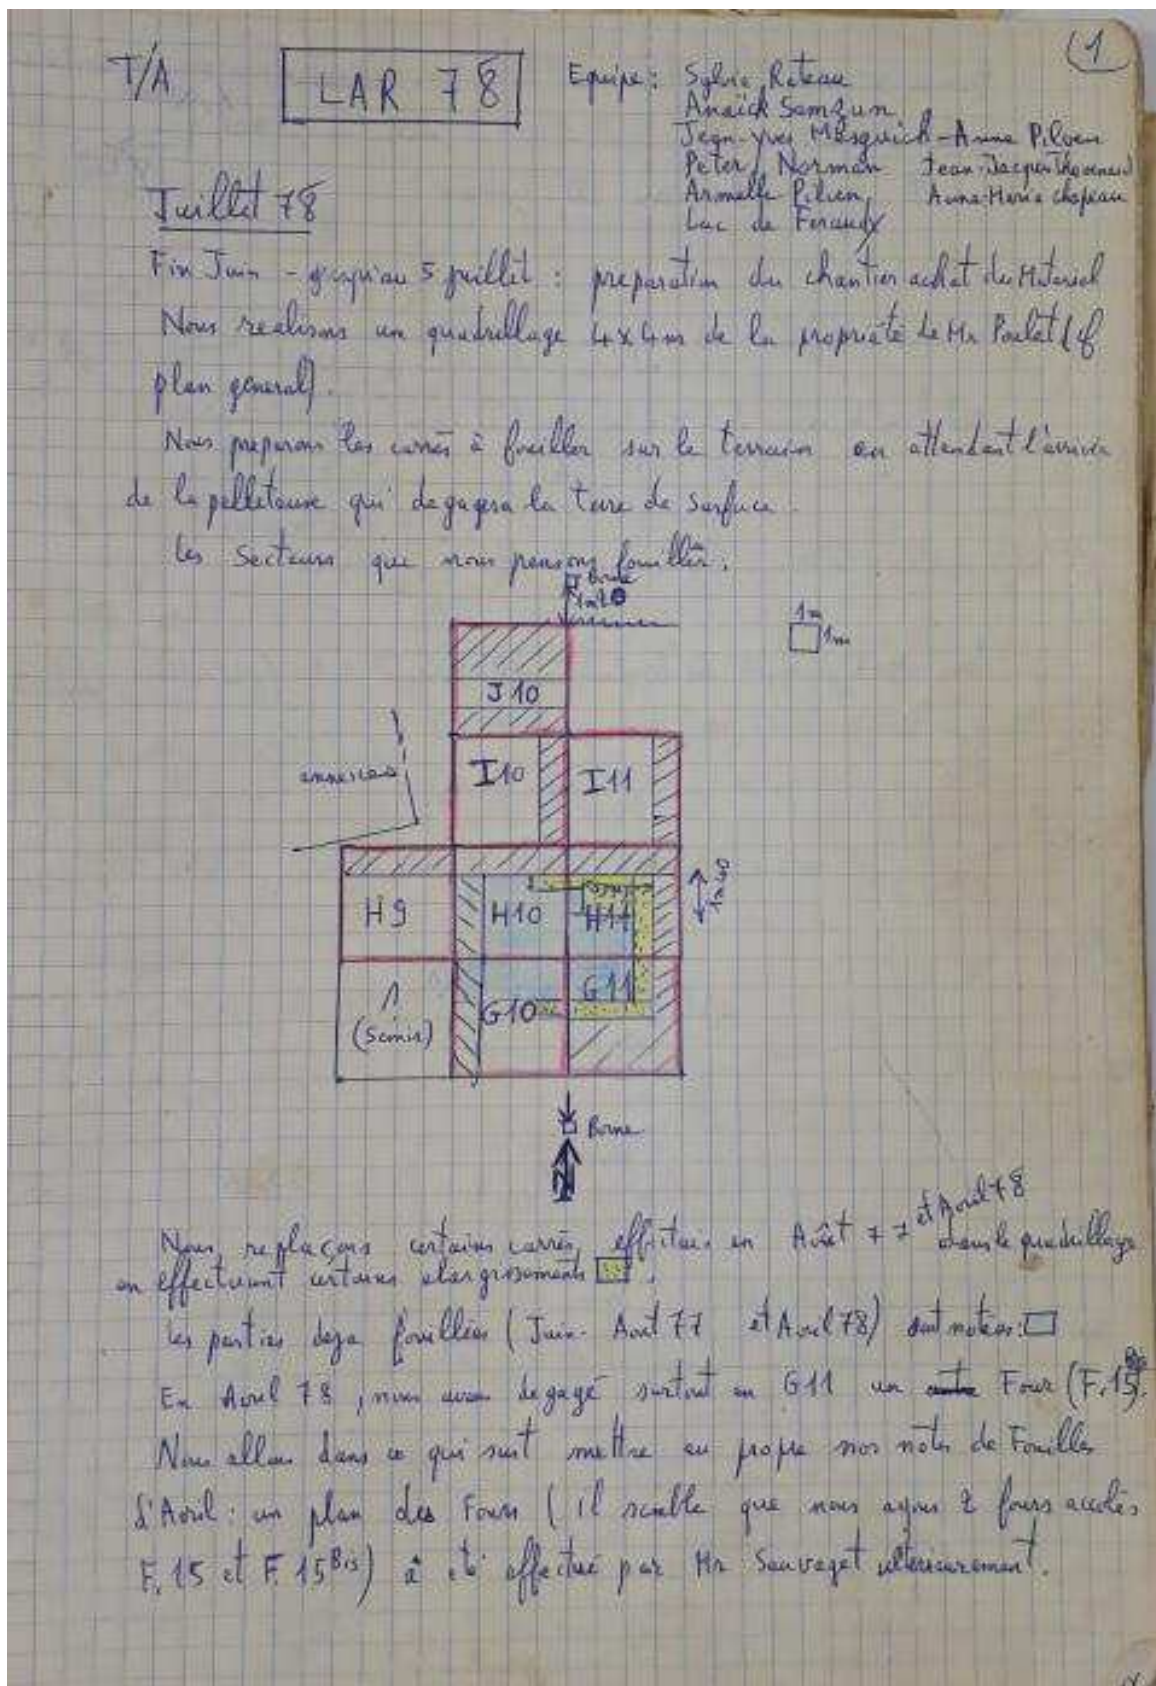 T/A
LAR 78
(1
Equipe : Sylvie Rateau
Anaïck Samzun
Jean-Yves - Anne Pilven
Peter Norman Jean-Jacques Thevenard
Armelle Pilven Anne-Marie Chapeau
Luc de
Juillet 78
Fin Juin - jusqu'au 5 juillet : preparation du chantier achat du Materiel
Nous realisons un quadrillage 4x4m de la propriété de Mr Poulat (cf
plan general).
Nous preparons les carrés à fouiller sur le terrain en attendant l'arrivée
de la pelleteuse qui degagera la terre de surface.
Les Secteurs que nous pensons fouiller.
Borne
1m
1m
J10
annexes
I10 I11
H9 H10 H11
1m40
1
G10 G11
Borne
N
et Avril 78
Nous replaçons certains carrés, effectués en Août 77 dans le quadrillage
en effectuant certains elargissements .
Les parties deja fouillées (Juin - Aout 77 et Avril 78) sont notées :
En Avril 78, nous avons degagé surtout en G11 un Four (F.15 Bis).
Nous allons dans ce qui suit mettre au propre nos notes de Fouilles
d'Avril : un plan des Fours ( Il semble que nous ayons 2 fours accolés
F.15 et F.15 Bis) a été effectué par Mr Sauvaget ulterieurement.